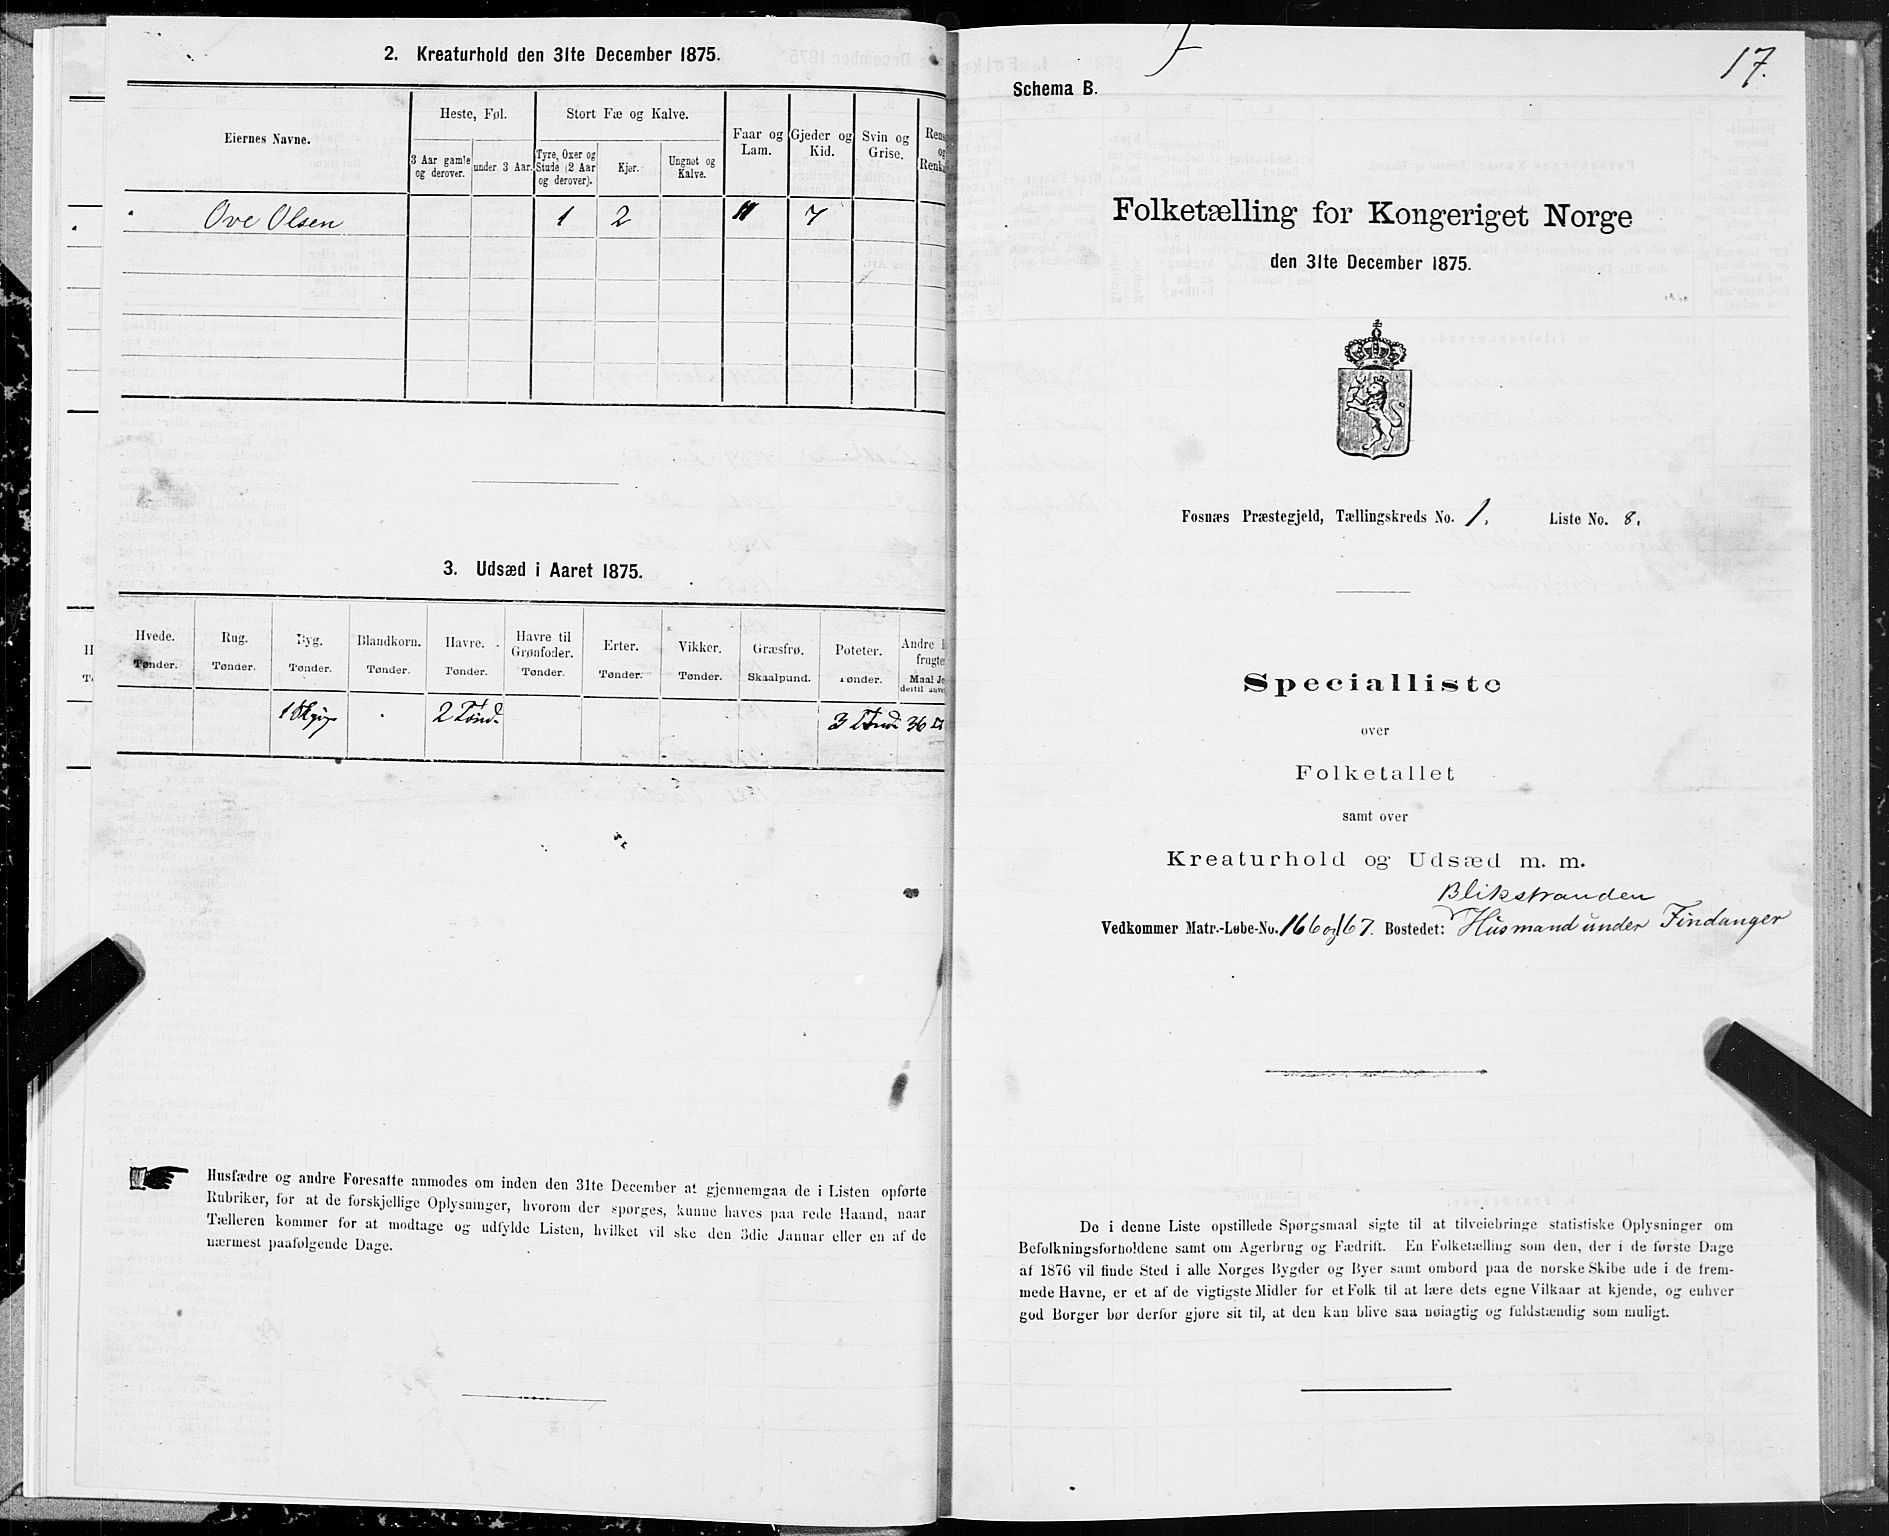 2. Kreaturhold den 31te December 1875.
Eiernes Navne.
Heste, Føl.
3 Aar gamle og derover.
under 3 Aar.
Stort Fæ og Kalve.
Tyre, Oxer og Stude (2 Aar og derover).
Kjør.
Ungnøt og Kalve.
Faar og Lam.
Gjeder og Kid.
Svin og Grise.
Rens
og
Renka
Ove Olsen 1 2 11 7
3. Udsæd i Aaret 1875.
Hvede. Rug. Byg. Blandkorn. Havre. Havre til Grønfoder. Erter. Vikker. Græsfrø. Poteter. Andre
frugte
Tønder. Tønder. Tønder. Tønder. Tønder. Tønder. Tønder. Tønder. Skaalpund. Tønder. Maal Jo
dertil anve
2 Tønd. 3 36
Husfædre og andre Foresatte anmodes om inden den 31te December at gjennemgaa de i Listen opførte
Rubriker, for at de forskjellige Oplysninger, hvorom der spørges, kunne haves paa rede Haand, naar
Tælleren kommer for at modtage og udfylde Listen, hvilket vil ske den 3die Januar eller en af de
nærmest paafølgende Dage.
17.
Schema B.
Folketælling for Kongeriget Norge
den 31te December 1875.
Fosnæs Præstegjeld, Tællingskreds No. 1. Liste No. 8.
Specialliste
over
Folketallet
samt over
Kreaturhold og Udsæd m. m.
Blikstranden
Vedkommer Matr.-Løbe-No. 166 og 167. Bostedet: Husmand under Findanger
De i denne Liste opstillede Spørgsmaal sigte til at tilveiebringe statistiske Oplysninger om
Befolkningsforholdene samt om Agerbrug og Fædrift. En Folketælling som den, der i de første Dage
af 1876 vil finde Sted i alle Norges Bygder og Byer samt ombord paa de norske Skibe ude i de frem-
mede Havne, er et af de vigtigste Midler for et Folk til at lære dets egne Vilkaar at kjende, og enhver
god Borger bør derfor gjøre sit til, at den kan blive saa nøiagtig og fuldstændig som muligt.